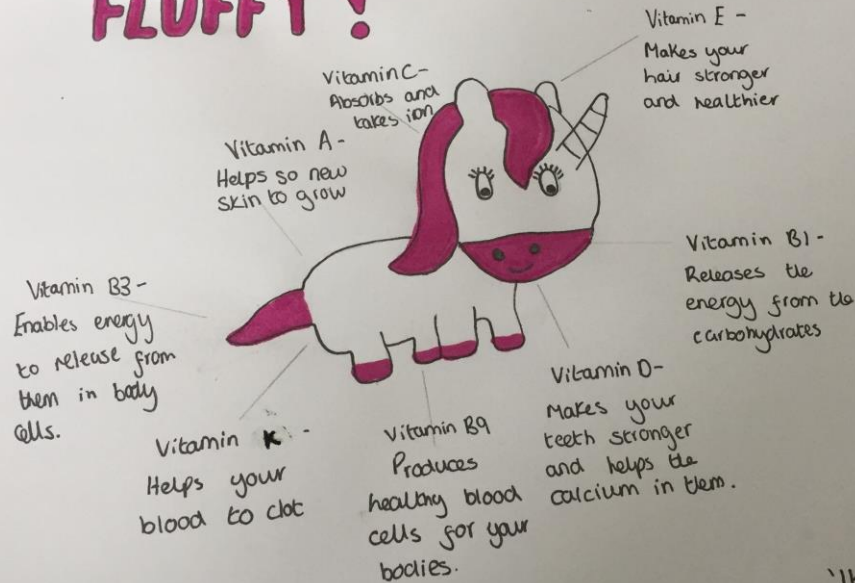 FLUFFY!
Vitamin E -
Makes your
hair stronger
and healthier
Vitamin C-
Absorbs and
takes iron
Vitamin A-
Helps so new
skin to grow
Vitamin B1-
Releases the
energy from the
carbohydrates
Vitamin B3-
Enables energy
to release from
them in body
cells.
Vitamin K -
Helps your
blood to clot
Vitamin B9
Produces
healthy blood
cells for your
bodies.
Vitamin D-
Makes your
teeth stronger
and helps the
calcium in them.